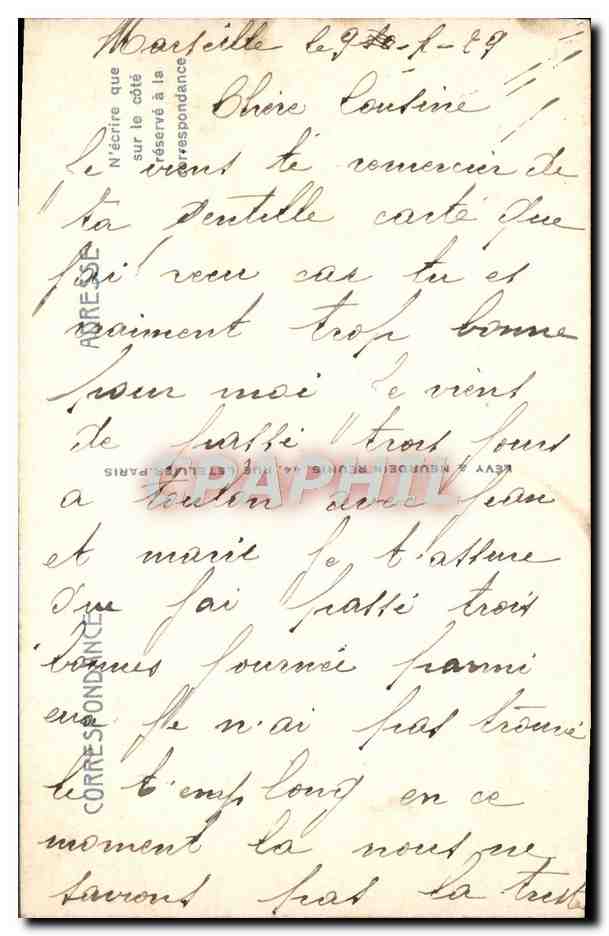 Marseille le 9 - 1 - 29
Chère Cousine
Je viens te remercier de
ta gentille carte que
j'ai recu car tu es
vraiment trop bonne
pour moi Je viens
de passé trois jours
a toulon avec Jean
et marie Je t'assure
que j'ai passé trois
bonnes journée parmi
eux Je n'ai pas trouvé
le t'emp long en ce
moment la nous ne
savions pas la triste
N'écrire que
sur le côté
réservé à la
correspondance
ADRESSE
CORRESPONDANCE
LÉVY & NEURDEIN RÉUNIS, 44, RUE LETELLIER, PARIS
CPAPHIL